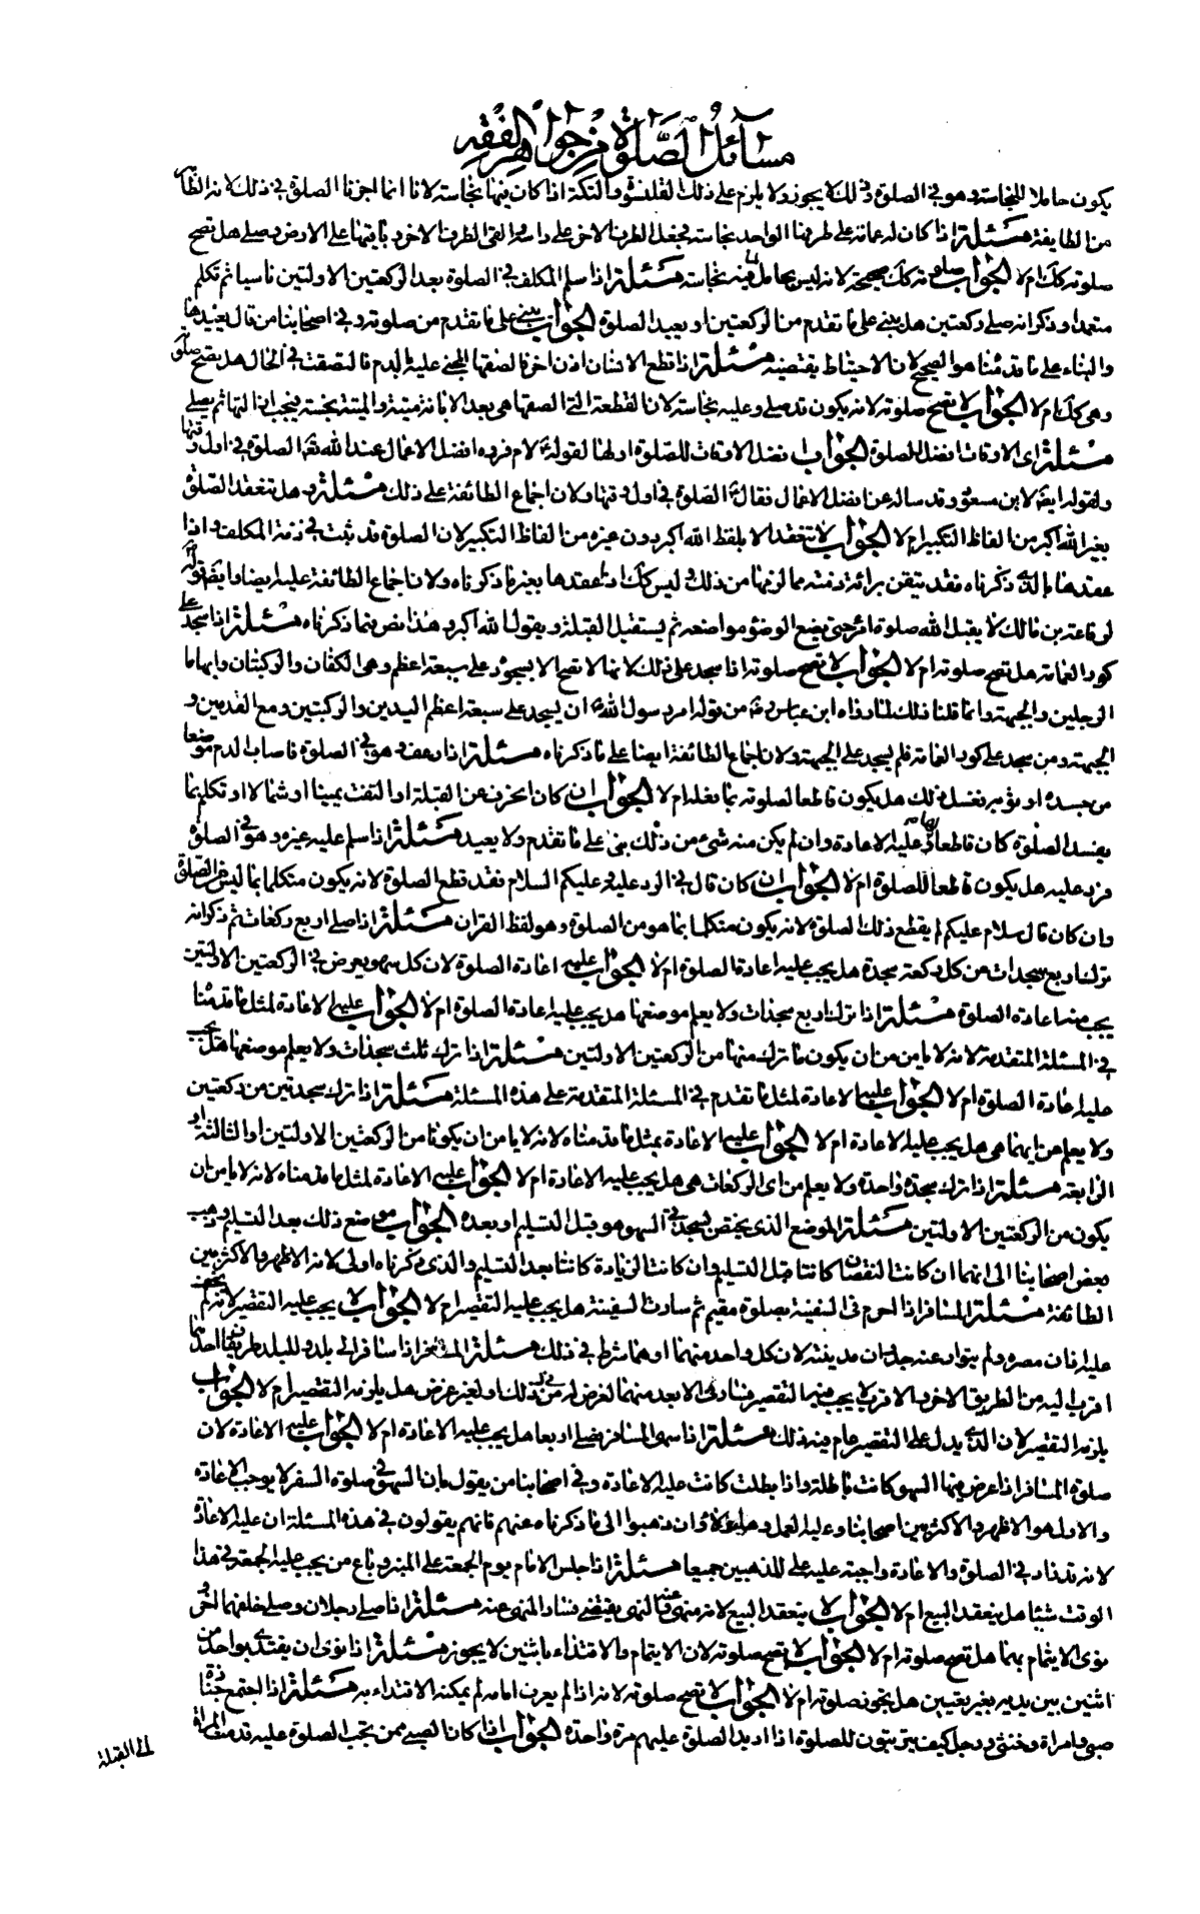 مسائل الصلوة من جواهر الفقه
يكون حاملا للنجاسة وهو في الصلوة وذلك لا يجوز ولا يلزم على ذلك القلنسوة والتكة اذا كان فيهما نجاسة لانا انما اجزنا الصلوة في ذلك لانه الظاهر
من الطايفة مسئلة اذا كان له عمامة على طرفها الواحد نجاسة فجعل الطرف الاخر على راسه والقى الطرف الاخر وبايتها على الارض وصلى هل تصح
صلوته كك ام لا الجواب صلوته كك صحيحة لانه ليس بحامل لما فيه نجاسة مسئلة اذا سلم المكلف في الصلوة بعد الركعتين الاولتين ناسيا ثم تكلم
متعمدا وذكر انه صلى ركعتين هل يبنى على ما تقدم من الركعتين او يعيد الصلوة الجواب يبنى على ما تقدم من صلوته وفي اصحابنا من قال يعيدها
والبناء على ما قدمناه هو الصحيح لان الاحتياط يقتضيه مسئلة اذا قطع الانسان اذن اخر فالصقها المجنى عليه بالدم فالتصقت في الحال هل يصح صلوته
وهى كك ام لا الجواب لا تصح صلوته لانه يكون قد صلى وعليه نجاسة لان القطعة التى الصقها هى بعد الابانة ميتة والميتة نجسة فيجب ازالتها ثم يصلى
مسئلة اى الاوقات افضل للصلوة الجواب افضل الاوقات للصلوة اولها لقوله ع لام فروه افضل الاعمال عند الله تعالى الصلوة في اول وقتها
ولقوله ايضا لابن مسعود وقد ساله عن افضل الاعمال فقال ع الصلوة في اول وقتها ولان اجماع الطائفة على ذلك مسئلة وهل تنعقد الصلوة
بغير الله اكبر من الفاظ التكبير ام لا الجواب لا تنعقد الا بلفظ الله اكبر دون غيره من الفاظ التكبير لان الصلوة قد ثبت في ذمة المكلف واذا
عقدها بالذى ذكرناه فقد تيقن برائة ذمته مما لزمها من ذلك وليس كك اذا عقدها بغير ما ذكرناه ولان اجماع الطائفة عليه ايضا وايضا قوله
لرفاعة بن مالك لا يقبل الله صلوة امرء حتى يضع الوضوء مواضعه ثم يستقبل القبلة ويقول الله اكبر وهذا نص فيما ذكرناه مسئلة اذا سجد على
كور العمامة هل تصح صلوته ام لا الجواب لا تصح صلوته اذا سجد على ذلك لانها لا تصح الا بسجود على سبعة اعظم وهى الكفان والركبتان وابهاما
الرجلين والجبهة وانما قلنا ذلك لما رواه ابن عباس ره من قوله امر رسول الله ص ان يسجد على سبعة اعظم اليدين والركبتين ومع القدمين و
الجبهة ومن سجد على كور العمامة فلم يسجد على الجبهة ولان اجماع الطائفة ايضا على ما ذكرناه مسئلة اذا رعف وهو في الصلوة فاصاب الدم موضعا
من جسده او ثوبه فغسل ذلك هل يكون قاطعا لصلوته بما فعله ام لا الجواب ان كان انحرف عن القبلة او التفت يمينا او شمالا او تكلم بما
يفسد الصلوة كان قاطعا لها وعليه الاعادة وان لم يكن منه شئ من ذلك بنى على ما تقدم ولا يعيد مسئلة اذا سلم عليه غيره وهو في الصلوة
فرد عليه هل يكون قاطعا للصلوة ام لا الجواب ان كان قال في الرد عليه وعليكم السلام فقد قطع الصلوة لانه يكون متكلما بما ليس من الصلوة
وان كان قال سلام عليكم لم يقطع ذلك الصلوة لانه يكون متكلما بما هو من الصلوة وهو لفظ القران مسئلة اذا صلى اربع ركعات ثم ذكر انه
ترك اربع سجدات من كل ركعة سجدة هل يجب عليه اعادة الصلوة ام لا الجواب عليه اعادة الصلوة لان كل سهو يعرض في الركعتين الاولتين
يجب منه اعادة الصلوة مسئلة اذا ترك اربع سجدات ولا يعلم موضعها هل يجب عليه اعادة الصلوة ام لا الجواب عليه الاعادة لمثل ما قدمناه
في المسئلة المتقدمة لانه لا يامن من ان يكون ما ترك منها من الركعتين الاولتين مسئلة اذا ترك ثلث سجدات ولا يعلم موضعها هل يجب
عليه اعادة الصلوة ام لا الجواب عليه الاعادة لمثل ما تقدم في المسئلة المتقدمة على هذه المسئلة مسئلة اذا ترك سجدتين من ركعتين
ولا يعلم من ايهما هى هل يجب عليه الاعادة ام لا الجواب عليه الاعادة بمثل ما قدمناه لانه لا يامن ان يكونا من الركعتين الاولتين او الثالثة و
الرابعة مسئلة اذا ترك سجدة واحدة ولا يعلم من اى الركعات هى هل يجب عليه الاعادة ام لا الجواب عليه الاعادة لمثل ما قدمناه لانه لا يامن ان
يكون من الركعتين الاولتين مسئلة الموضع الذى يختص بسجدتى السهو هو قبل التسليم او بعده الجواب موضع ذلك بعد التسليم وذهب
بعض اصحابنا الى انهما ان كانتا لنقصان كانتا قبل التسليم وان كانتا لزيادة كانتا بعد التسليم والذى ذكرناه اولى لانه الاظهر والاكثر بين
الطائفة مسئلة المسافر اذا احرم فى السفينة بصلوة مقيم ثم سارت السفينة هل يجب عليه التقصير ام لا الجواب لا يجب عليه التقصير لانه لم يخف
عليه اذان مصره ولم يتوار عنه جدران مدينته لان كل واحد منهما او هما شرط في ذلك مسئلة المسافر اذا سافر الى بلد وللبلد طريقان احدهما
اقرب اليه من الطريق الاخر والاقرب لا يجب فيه التقصير فسافر فى الابعد منهما لغرض له من ذلك او لغير غرض هل يلزمه التقصير ام لا الجواب
يلزمه التقصير لان الذى يدل على التقصير عام فيه ذلك مسئلة اذا سهى المسافر فصلى اربعا هل يجب عليه الاعادة ام لا الجواب عليه الاعادة لان
صلوة المسافر اذا عرض فيها السهو كانت باطلة واذا بطلت كانت عليه الاعادة وفي اصحابنا من يقول بان السهو في صلوة السفر لا يوجب الاعادة
والاول هو الاظهر والاكثر بين اصحابنا وعليه العمل وهؤلاء وان ذهبوا الى ما ذكرناه عنهم فانهم يقولون في هذه المسئلة ان عليه الاعادة
لانه قد زاد في الصلوة والاعادة واجبة عليه على المذهبين جميعا مسئلة اذا جلس الامام يوم الجمعة على المنبر وباع من يجب عليه الجمعة في هذا
الوقت شيئا هل ينعقد البيع ام لا الجواب لا ينعقد البيع لانه منهى عنه والنهى يقتضى فساد المنهى عنه مسئلة اذا صلى رجلان وصلى خلفهما اخر و
نوى الايتمام بهما هل تصح صلوته ام لا الجواب لا تصح صلوته لان الايتمام والاقتداء باثنين لا يجوز مسئلة اذا نوى ان يقتدى بواحد من
اثنين بين يديه بغير تعيين هل يجوز صلوته ام لا الجواب لا تصح صلوته لانه اذا لم يعرف امامه لم يمكنه الاقتداء به مسئلة اذا اجتمع جنازة
صبى وامراة وخنثى ورجل كيف يترتبون للصلوة اذا اريد الصلوة عليهم مرة واحدة الجواب اذا كان الصبى ممن يجب الصلوة عليه قدمت المراة
الى القبلة